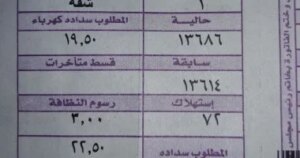 ١ شقة
حالية المطلوب سداده كهرباء
١٣٦٨٦ ١٩,٥٠
سابقة قسط متأخرات
١٣٦١٤
إستهلاك رسوم النظافة
٧٢ ٣,٠٠
المطلوب سداده ٢٢,٥٠
وختم الفاتورة بخاتم رئيس مجلس